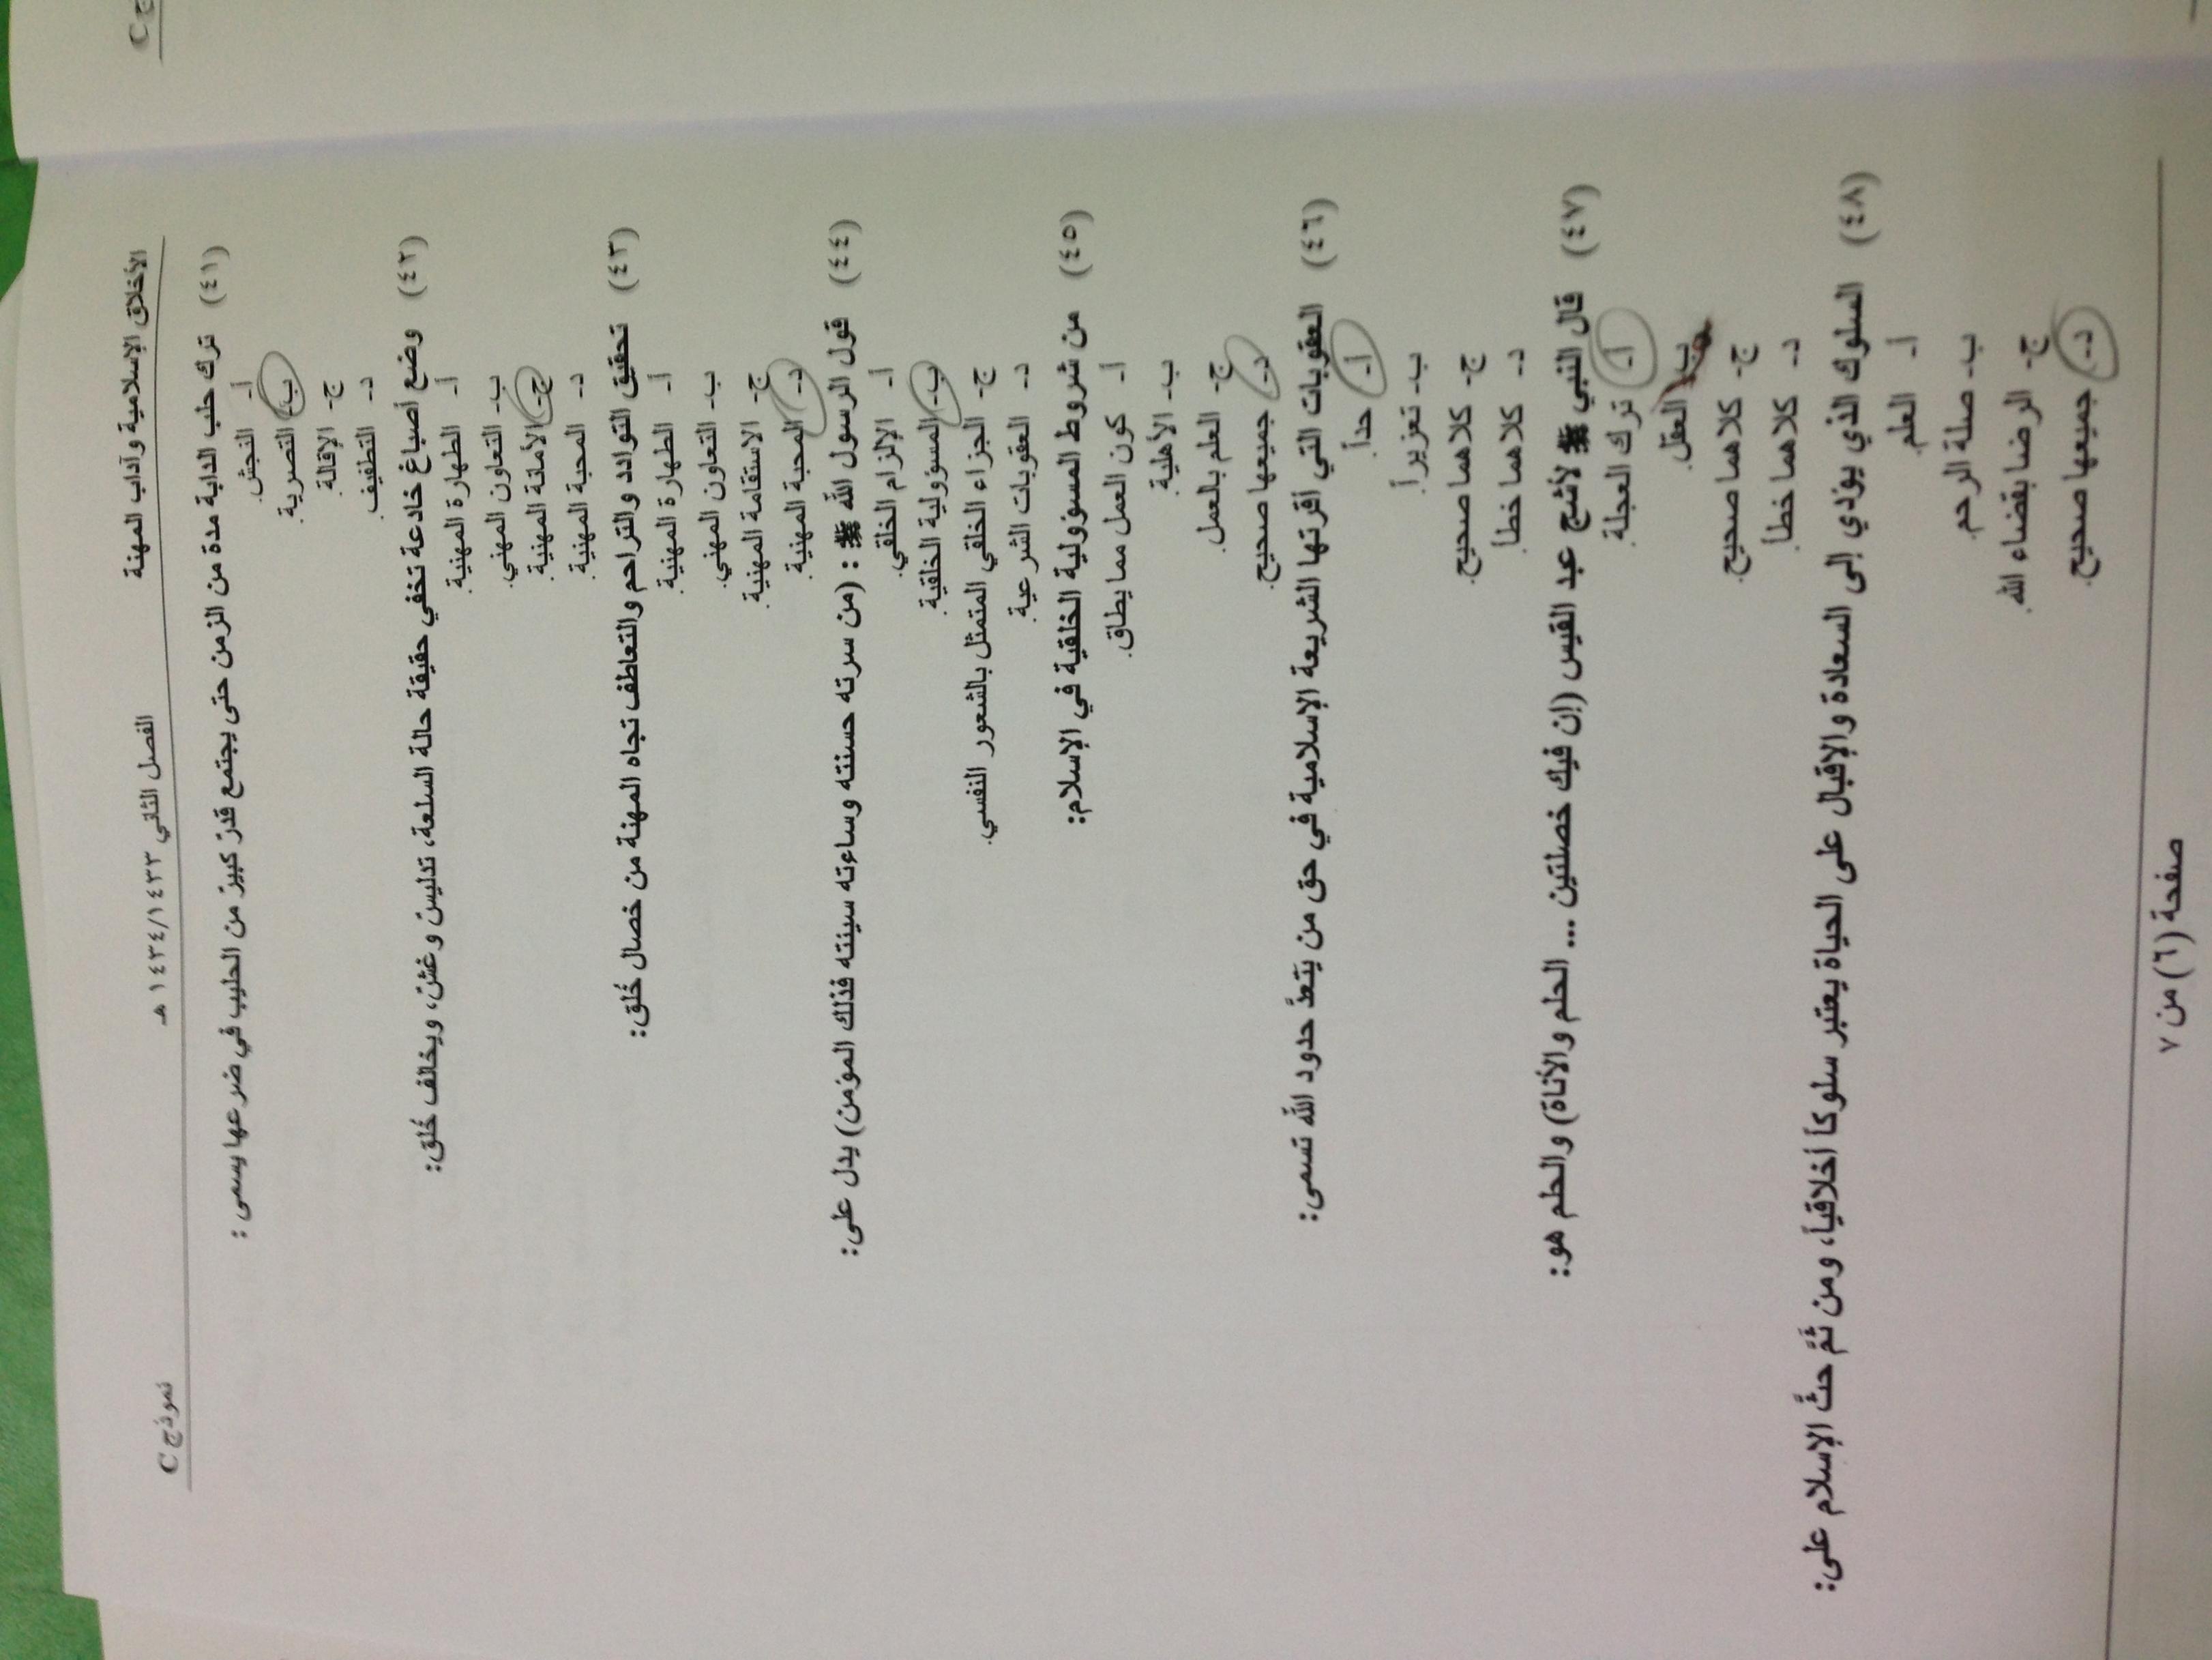 الأخلاق الإسلامية وآداب المهنة الفصل الثاني ١٤٣٤/١٤٣٣ هـ نموذج C
(٤١) ترك حلب الدابة مدة من الزمن حتى يجتمع قدرٌ كبيرٌ من الحليب في ضرعها يسمى :
أ- النجش.
ب- التصرية.
ج- الإقالة.
د- التطفيف.
(٤٢) وضع أصباغ خادعة تخفي حقيقة حالة السلعة، تدليسٌ وغشٌ، ويخالف خُلق:
أ- الطهارة المهنية.
ب- التعاون المهني.
ج- الأمانة المهنية.
د- المحبة المهنية.
(٤٣) تحقيق التوادد والتراحم والتعاطف تجاه المهنة من خصال خُلق:
أ- الطهارة المهنية.
ب- التعاون المهني.
ج- الاستقامة المهنية.
د- المحبة المهنية.
(٤٤) قول الرسول الله ﷺ : (من سرته حسنته وساءته سيئته فذلك المؤمن) يدل على:
أ- الإلزام الخلقي.
ب- المسؤولية الخلقية.
ج- الجزاء الخلقي المتمثل بالشعور النفسي.
د- العقوبات الشرعية.
(٤٥) من شروط المسؤولية الخلقية في الإسلام:
أ- كون العمل مما يطاق.
ب- الأهلية.
ج- العلم بالعمل.
د- جميعها صحيح.
(٤٦) العقوبات التي أقرتها الشريعة الإسلامية في حق من يتعدَّ حدود الله تسمى:
أ- حداً.
ب- تعزيراً.
ج- كلاهما صحيح.
د- كلاهما خطأ.
(٤٧) قال النبي ﷺ لأشج عبد القيس (إن فيك خصلتين ... الحلم والأناة) والحلم هو:
أ- ترك العجلة.
ب- العقل.
ج- كلاهما صحيح.
د- كلاهما خطأ.
(٤٨) السلوك الذي يؤدي إلى السعادة والإقبال على الحياة يعتبر سلوكاً أخلاقياً، ومن ثَمَّ حثَّ الإسلام على:
أ- العلم.
ب- صلة الرحم.
ج- الرضا بقضاء الله.
د- جميعها صحيح.
صفحة (٦) من ٧